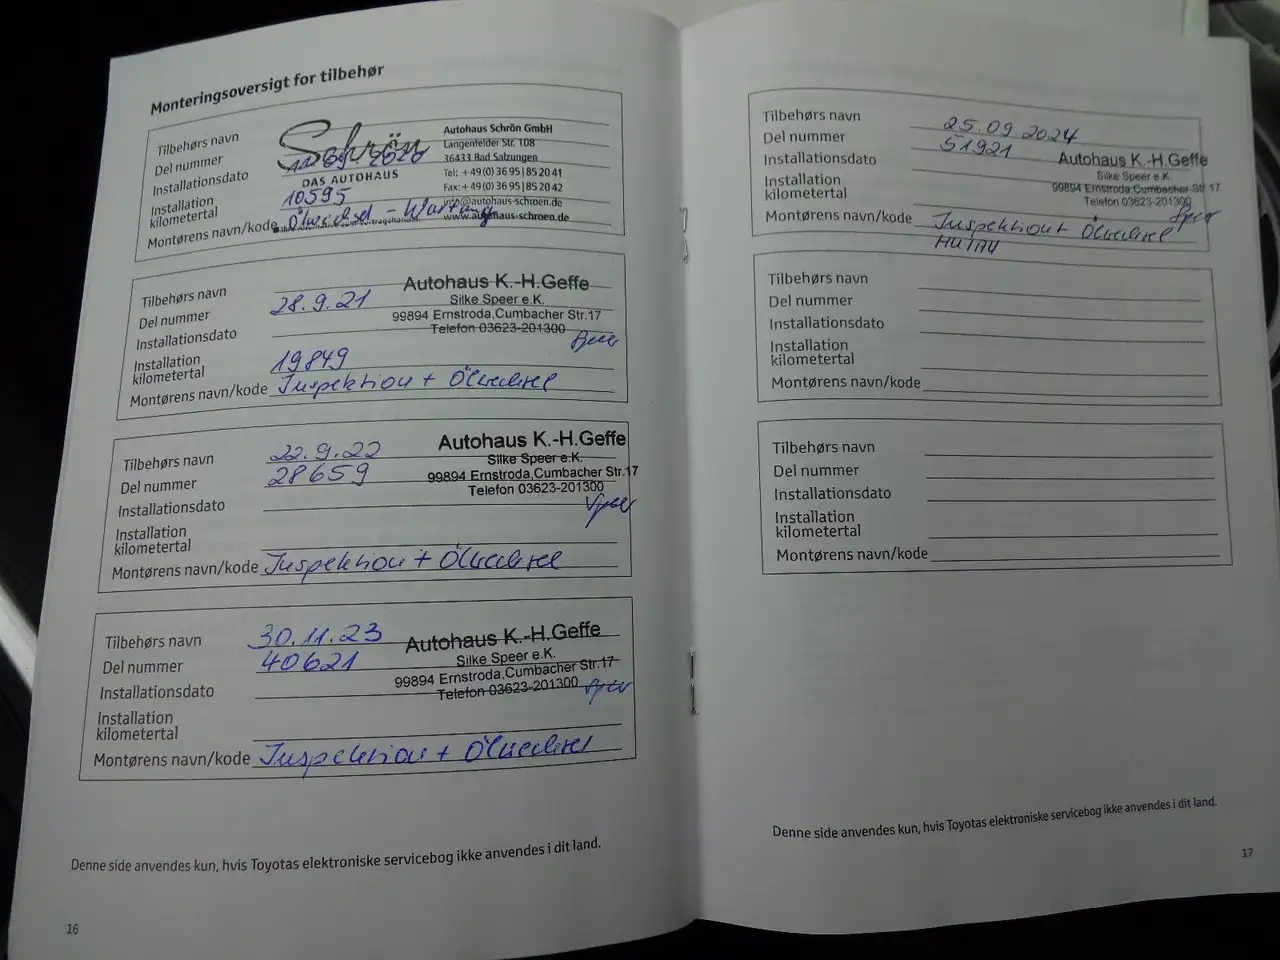 Monteringsoversigt for tilbehør
Tilbehørs navn
Del nummer
Installationsdato
Installation
kilometertal
Montørens navn/kode
Schrön
DAS AUTOHAUS
10595
Ölwechsel - Wartung
Autohaus Schrön GmbH
Langenfelder Str. 108
36433 Bad Salzungen
Tel: +49(0)36 95|85 20 41
Fax:+49(0)36 95|85 20 42
info@autohaus-schroen.de
www.autohaus-schroen.de
Tilbehørs navn
Del nummer
Installationsdato
Installation
kilometertal
Montørens navn/kode
28.9.21
19849
Inspektion + Ölwechsel
Autohaus K.-H.Geffe
Silke Speer e.K.
99894 Ernstroda,Cumbacher Str.17
Telefon 03623-201300
Speer
Tilbehørs navn
Del nummer
Installationsdato
Installation
kilometertal
Montørens navn/kode
22.9.22
28659
Inspektion + Ölwechsel
Autohaus K.-H.Geffe
Silke Speer e.K.
99894 Ernstroda,Cumbacher Str.17
Telefon 03623-201300
Speer
Tilbehørs navn
Del nummer
Installationsdato
Installation
kilometertal
Montørens navn/kode
30.11.23
40621
Inspektion + Ölwechsel
Autohaus K.-H.Geffe
Silke Speer e.K.
99894 Ernstroda,Cumbacher Str.17
Telefon 03623-201300
Speer
Denne side anvendes kun, hvis Toyotas elektroniske servicebog ikke anvendes i dit land.
16
Tilbehørs navn
Del nummer
Installationsdato
Installation
kilometertal
Montørens navn/kode
25.09.2024
51921
Inspektion + Ölwechsel
HU/AU
Autohaus K.-H.Geffe
Silke Speer e.K.
99894 Ernstroda,Cumbacher Str.17
Telefon 03623-201300
Speer
Tilbehørs navn
Del nummer
Installationsdato
Installation
kilometertal
Montørens navn/kode
Tilbehørs navn
Del nummer
Installationsdato
Installation
kilometertal
Montørens navn/kode
Denne side anvendes kun, hvis Toyotas elektroniske servicebog ikke anvendes i dit land.
17